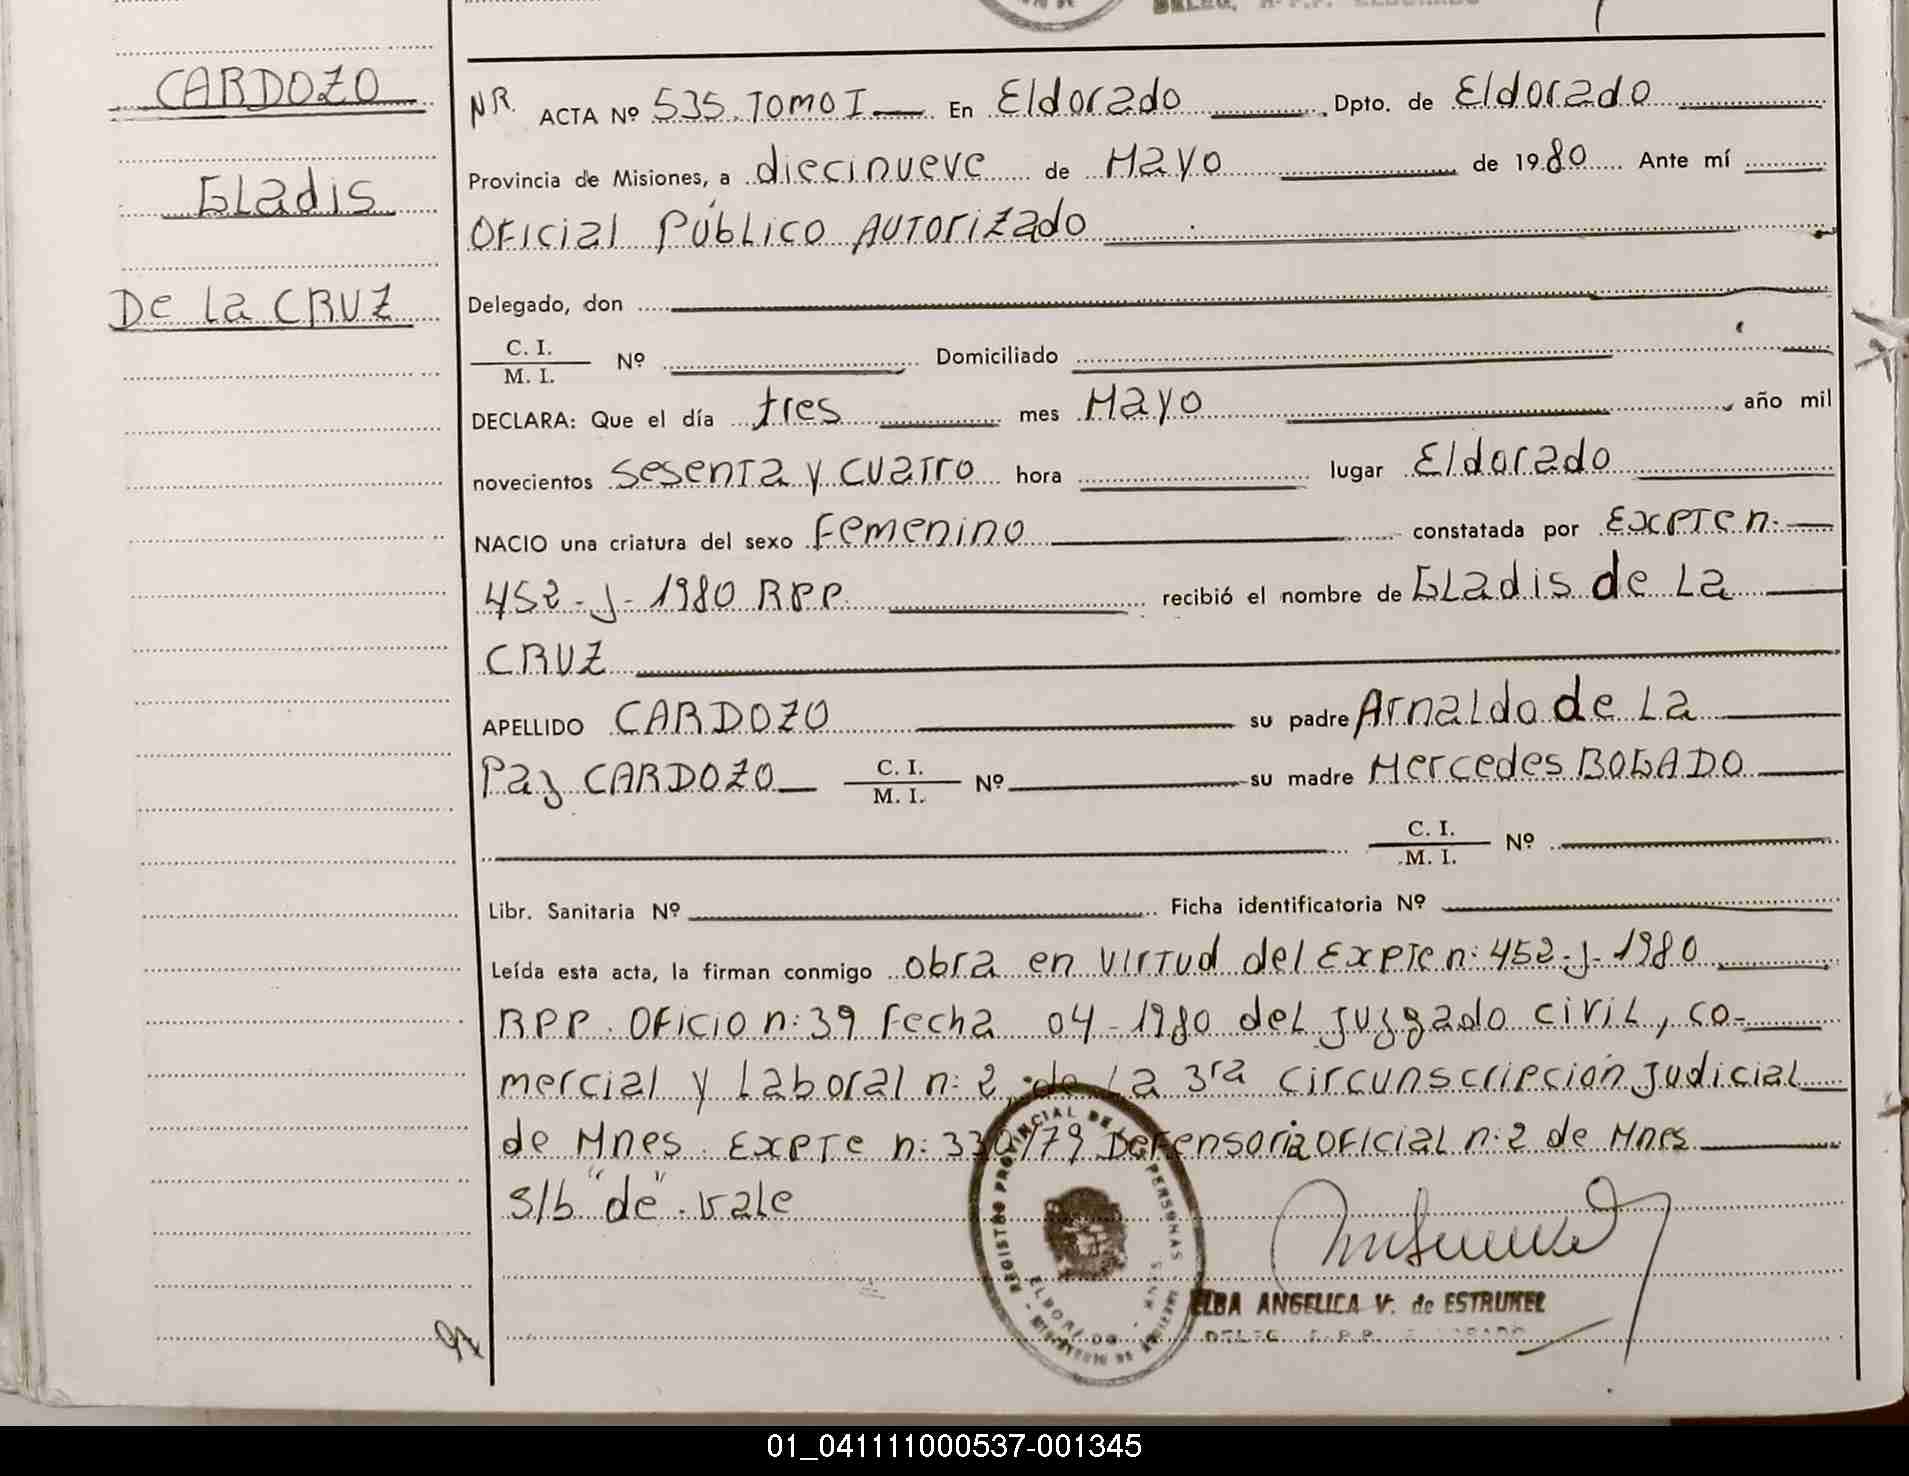 CARDOZO
Gladis
De la CRUZ
NR. ACTA Nº 535. TOMO I En Eldorado Dpto. de Eldorado
Provincia de Misiones, a diecinueve de Mayo de 1980 Ante mí
Oficial Público Autorizado
Delegado, don
C. I.
M. I. Nº Domiciliado
DECLARA: Que el día tres mes Mayo año mil
novecientos sesenta y cuatro hora lugar Eldorado
NACIO una criatura del sexo Femenino constatada por Expte n:
452-J-1980 RPP. recibió el nombre de Gladis de La
CRUZ
APELLIDO CARDOZO su padre Arnaldo de La
Paz CARDOZO C. I. M. I. Nº su madre Mercedes BOGADO
C. I.
M. I. Nº
Libr. Sanitaria Nº Ficha identificatoria Nº
Leída esta acta, la firman conmigo obra en virtud del Expte n: 452-J-1980
RPP. Oficio n: 39 Fecha 04-1980 del Juzgado civil, co-
mercial y Laboral n: 2, de La 3ra circunscripción Judicial
de Mnes. Expte n: 330/79 Defensoria Oficial n: 2 de Mnes
S/b "de". vale
REGISTRO PROVINCIAL DE LAS PERSONAS
ELDORADO
ELBA ANGELICA V. de ESTRUKEL
01_041111000537-001345